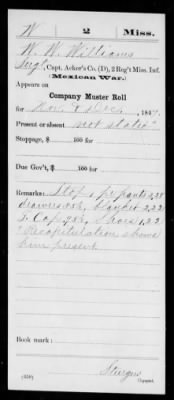 W 2 Miss.
W. W. Williams
Capt. Acker's Co. (D), 2 Reg't Miss. Inf.
(Mexican War.)
Appears on
Company Muster Roll
for Nov & Dec, 1847.
Present or absent not stated
Stoppage, $ 100 for
Due Gov't, $ 100 for
Remarks: Stop, 1 pr pants 2.28
drawers blanket 2.22
Cap Shoes 1.22
"Recapitulation shows
him present
Book mark:
Sturgus
(358) Copyist.